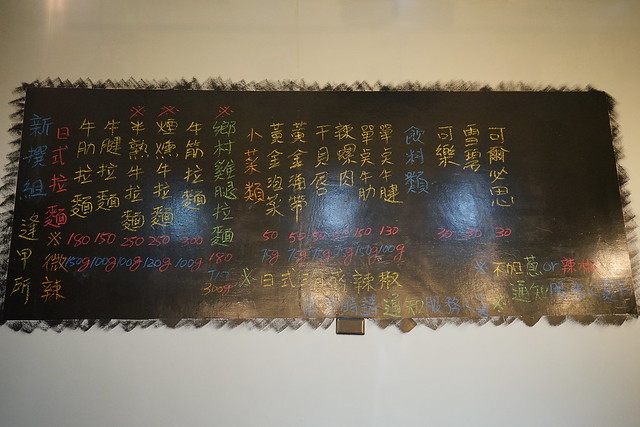 新撰組
逢甲所
日式拉麵
※微辣
牛肋拉麵
180
150g
牛腱拉麵
150
100g
※半熟牛拉麵
250
100g
※煙燻牛拉麵
250
120g
牛筋拉麵
300
100g
※鄉村雞腿拉麵
180
300g
小菜類
黃金泡菜
50
黃金海帶
50
干貝唇
辣爆肉
單炙牛肋
150
150g
單炙牛腱
130
100g
飲料類
可樂
30
雪碧
30
可爾必思
30
※日式
辣椒
※不加蔥or辣椒
通知服務